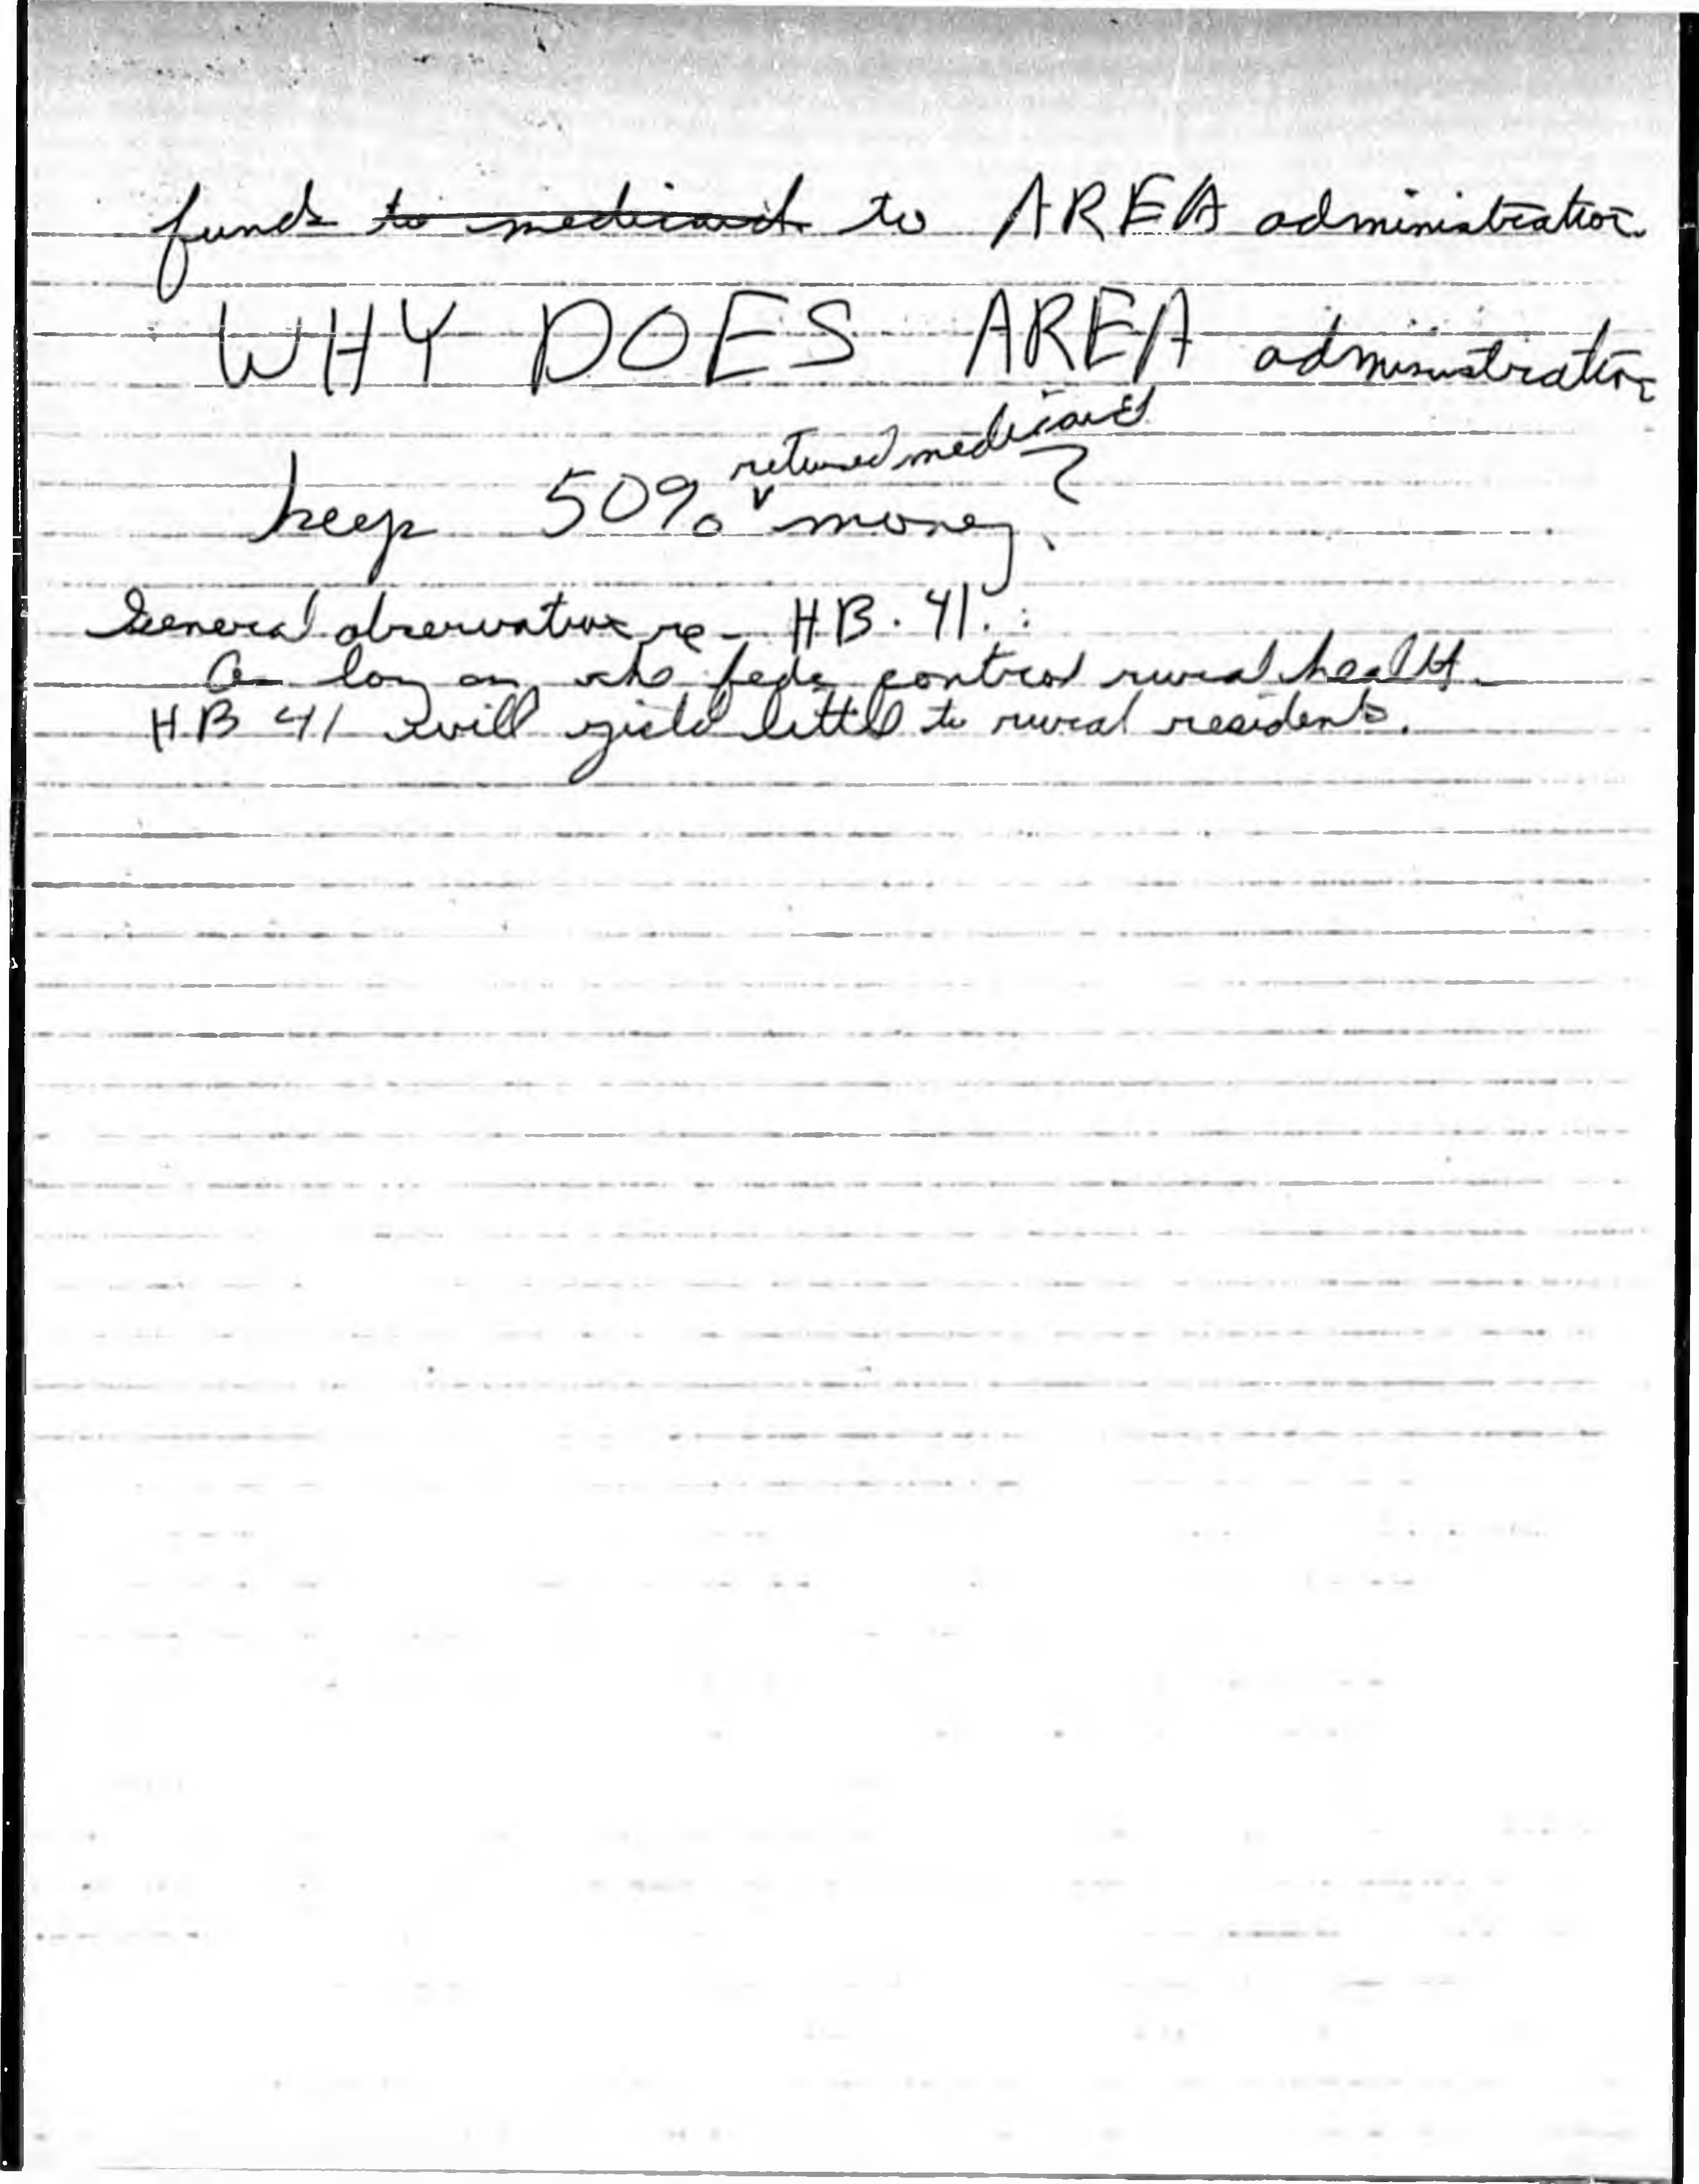 funds to medicaid to AREA administration
WHY DOES AREA administration
returned medicaid
keep 50% money?
General observation re - H.B. 41.:
As long as the feds control rural health
H.B 41 will yield little to rural residents.